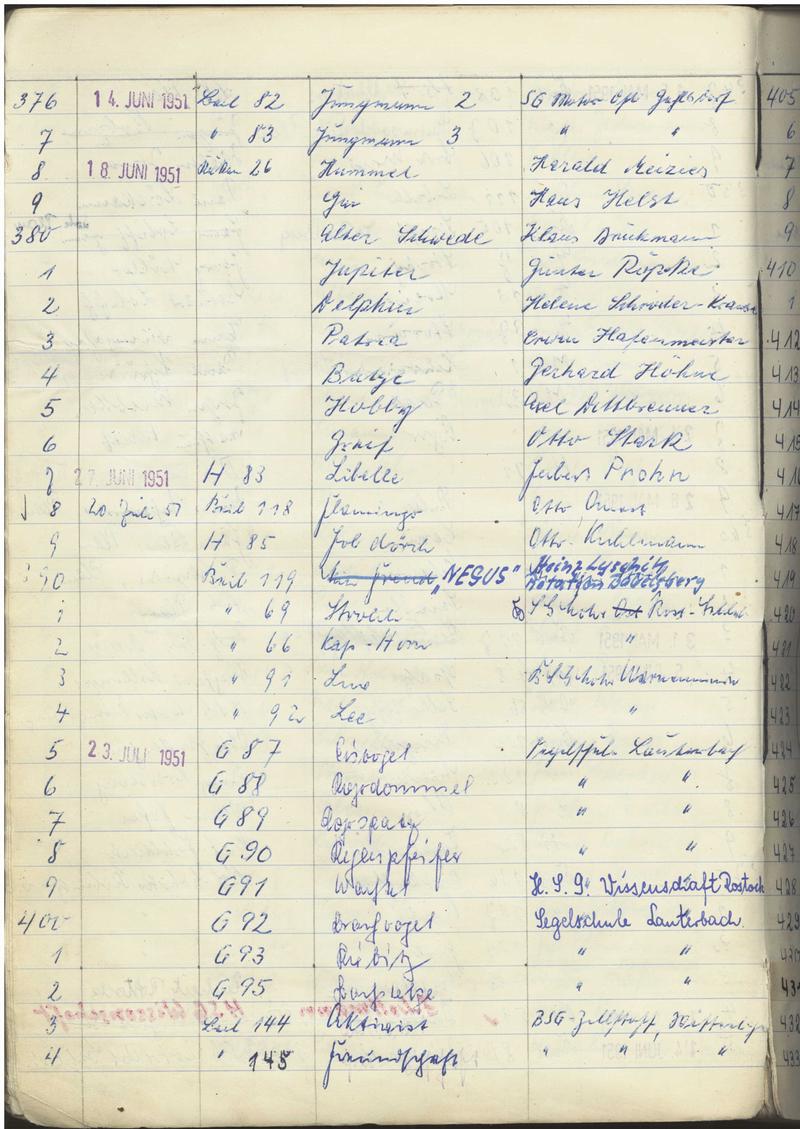 376 14. JUNI 1951 82 Jungmann 2 SG Motor
7 " 83 Jungmann 3 " "
8 18. JUNI 1951 26 Hummel Harald
9 Hans Helst
380 Alter Schwede Klaus Brückmann
1 Jupiter Günter Röpke
2 Delphin Helene Schröder-
3 Patria Erwin Hafenmeister
4 Butze Gerhard Höhne
5 Hobby Axel Dittbrenner
6 Greif Otto Stark
7 27. JUNI 1951 H 83 Libelle Prohn
8 20. Juli 51 118 Flamingo Otto
9 H 85 Otto Kuhlmann
90 119 "NEGUS" Heinz
Rotation Babelsberg
1 " 69
2 " 66 Kap-Horn "
3 " 91 Luv Warnemünde
4 " 92 Lee "
5 23. JULI 1951 G 87 Eisvogel Segelschule Lauterbach
6 G 88 Rohrdommel " "
7 G 89 Rohrspatz " "
8 G 90 Regenpfeifer " "
9 G 91 H.S.G. Wissenschaft Rostock
400 G 92 Brachvogel Segelschule Lauterbach
1 G 93 Kiebitz " "
2 G 95 " "
3 144 Aktivist BSG-Zellstoff,
4 " 145 Freundschaft " " "
405
6
7
8
9
410
1
412
413
414
415
416
417
418
419
420
421
422
423
424
425
426
427
428
429
430
431
432
433